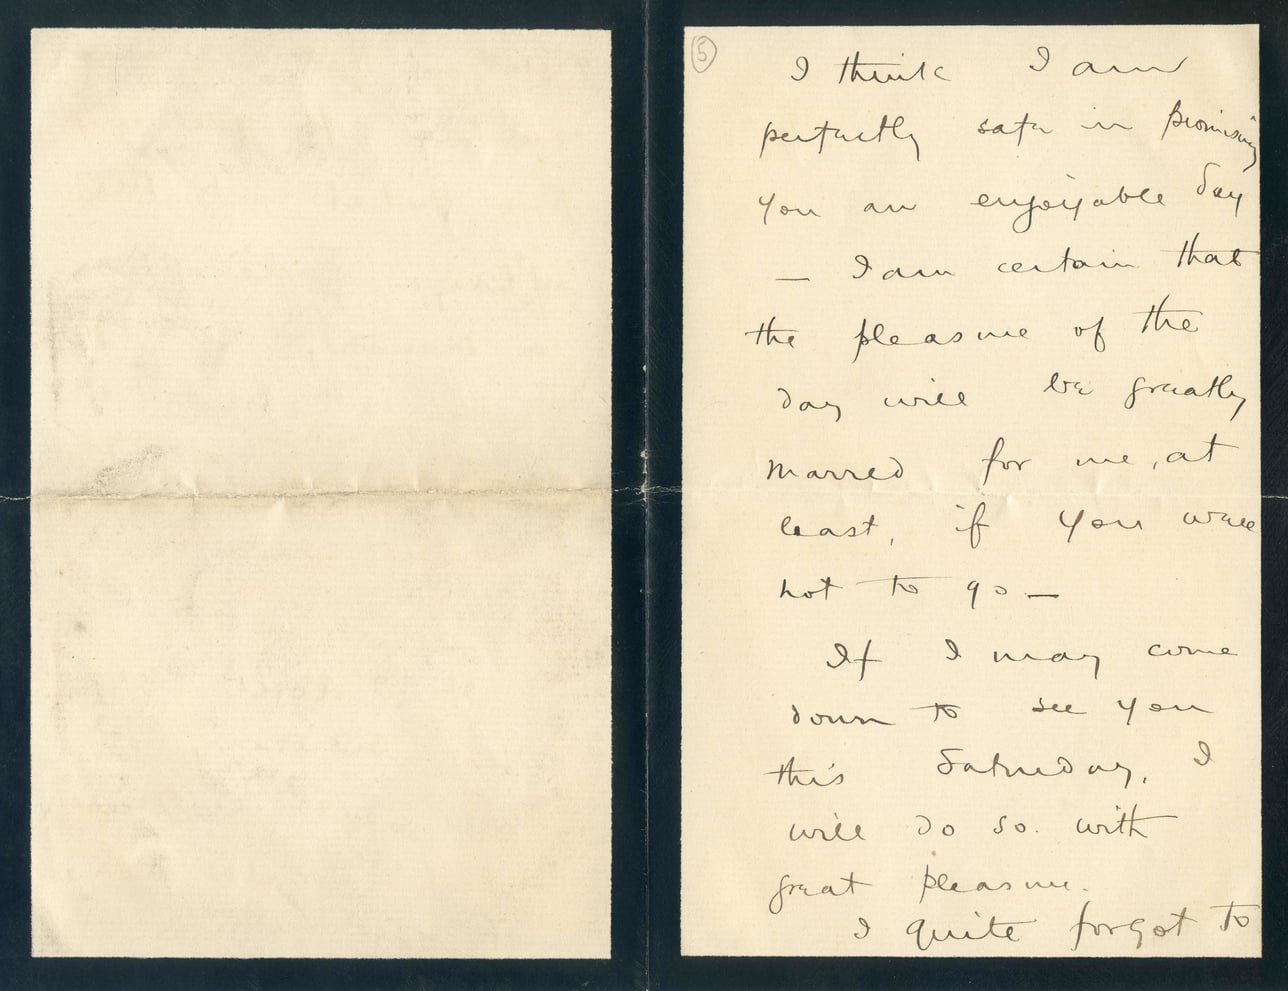 5
I think I am
perfectly safe in promising
you an enjoyable day
— I am certain that
the pleasure of the
day will be greatly
marred for me, at
least, if you were
not to go —
If I may come
down to see you
this Saturday, I
will do so with
great pleasure.
I quite forgot to